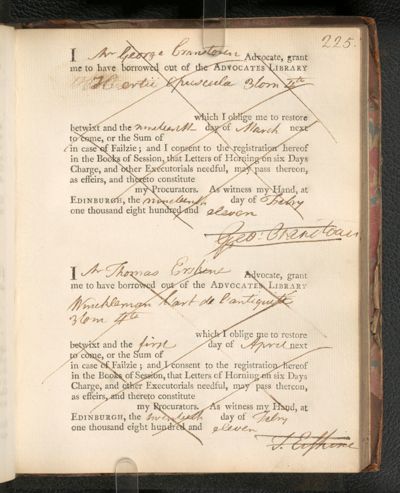 225.
I Mr George Cranstoun Advocate, grant
me to have borrowed out of the ADVOCATES LIBRARY
opuscula 3 tom 4to
which I oblige me to restore
betwixt and the nineteenth day of March next
to come, or the Sum of
in case of Failzie; and I consent to the registration hereof
in the Books of Session, that Letters of Horning on six Days
Charge, and other Executorials needful, may pass thereon,
as effeirs, and thereto constitute
my Procurators. As witness my Hand, at
EDINBURGH, the nineteenth day of Febry
one thousand eight hundred and eleven
Geo. Cranstoun
I Mr Thomas Erskine Advocate, grant
me to have borrowed out of the ADVOCATES LIBRARY
Winckleman hart de l'antiquité
3 tom 4to
which I oblige me to restore
betwixt and the first day of April next
to come, or the Sum of
in case of Failzie; and I consent to the registration hereof
in the Books of Session, that Letters of Horning on six Days
Charge, and other Executorials needful, may pass thereon,
as effeirs, and thereto constitute
my Procurators. As witness my Hand, at
EDINBURGH, the twentieth day of Febry
one thousand eight hundred and eleven
T. Erskine